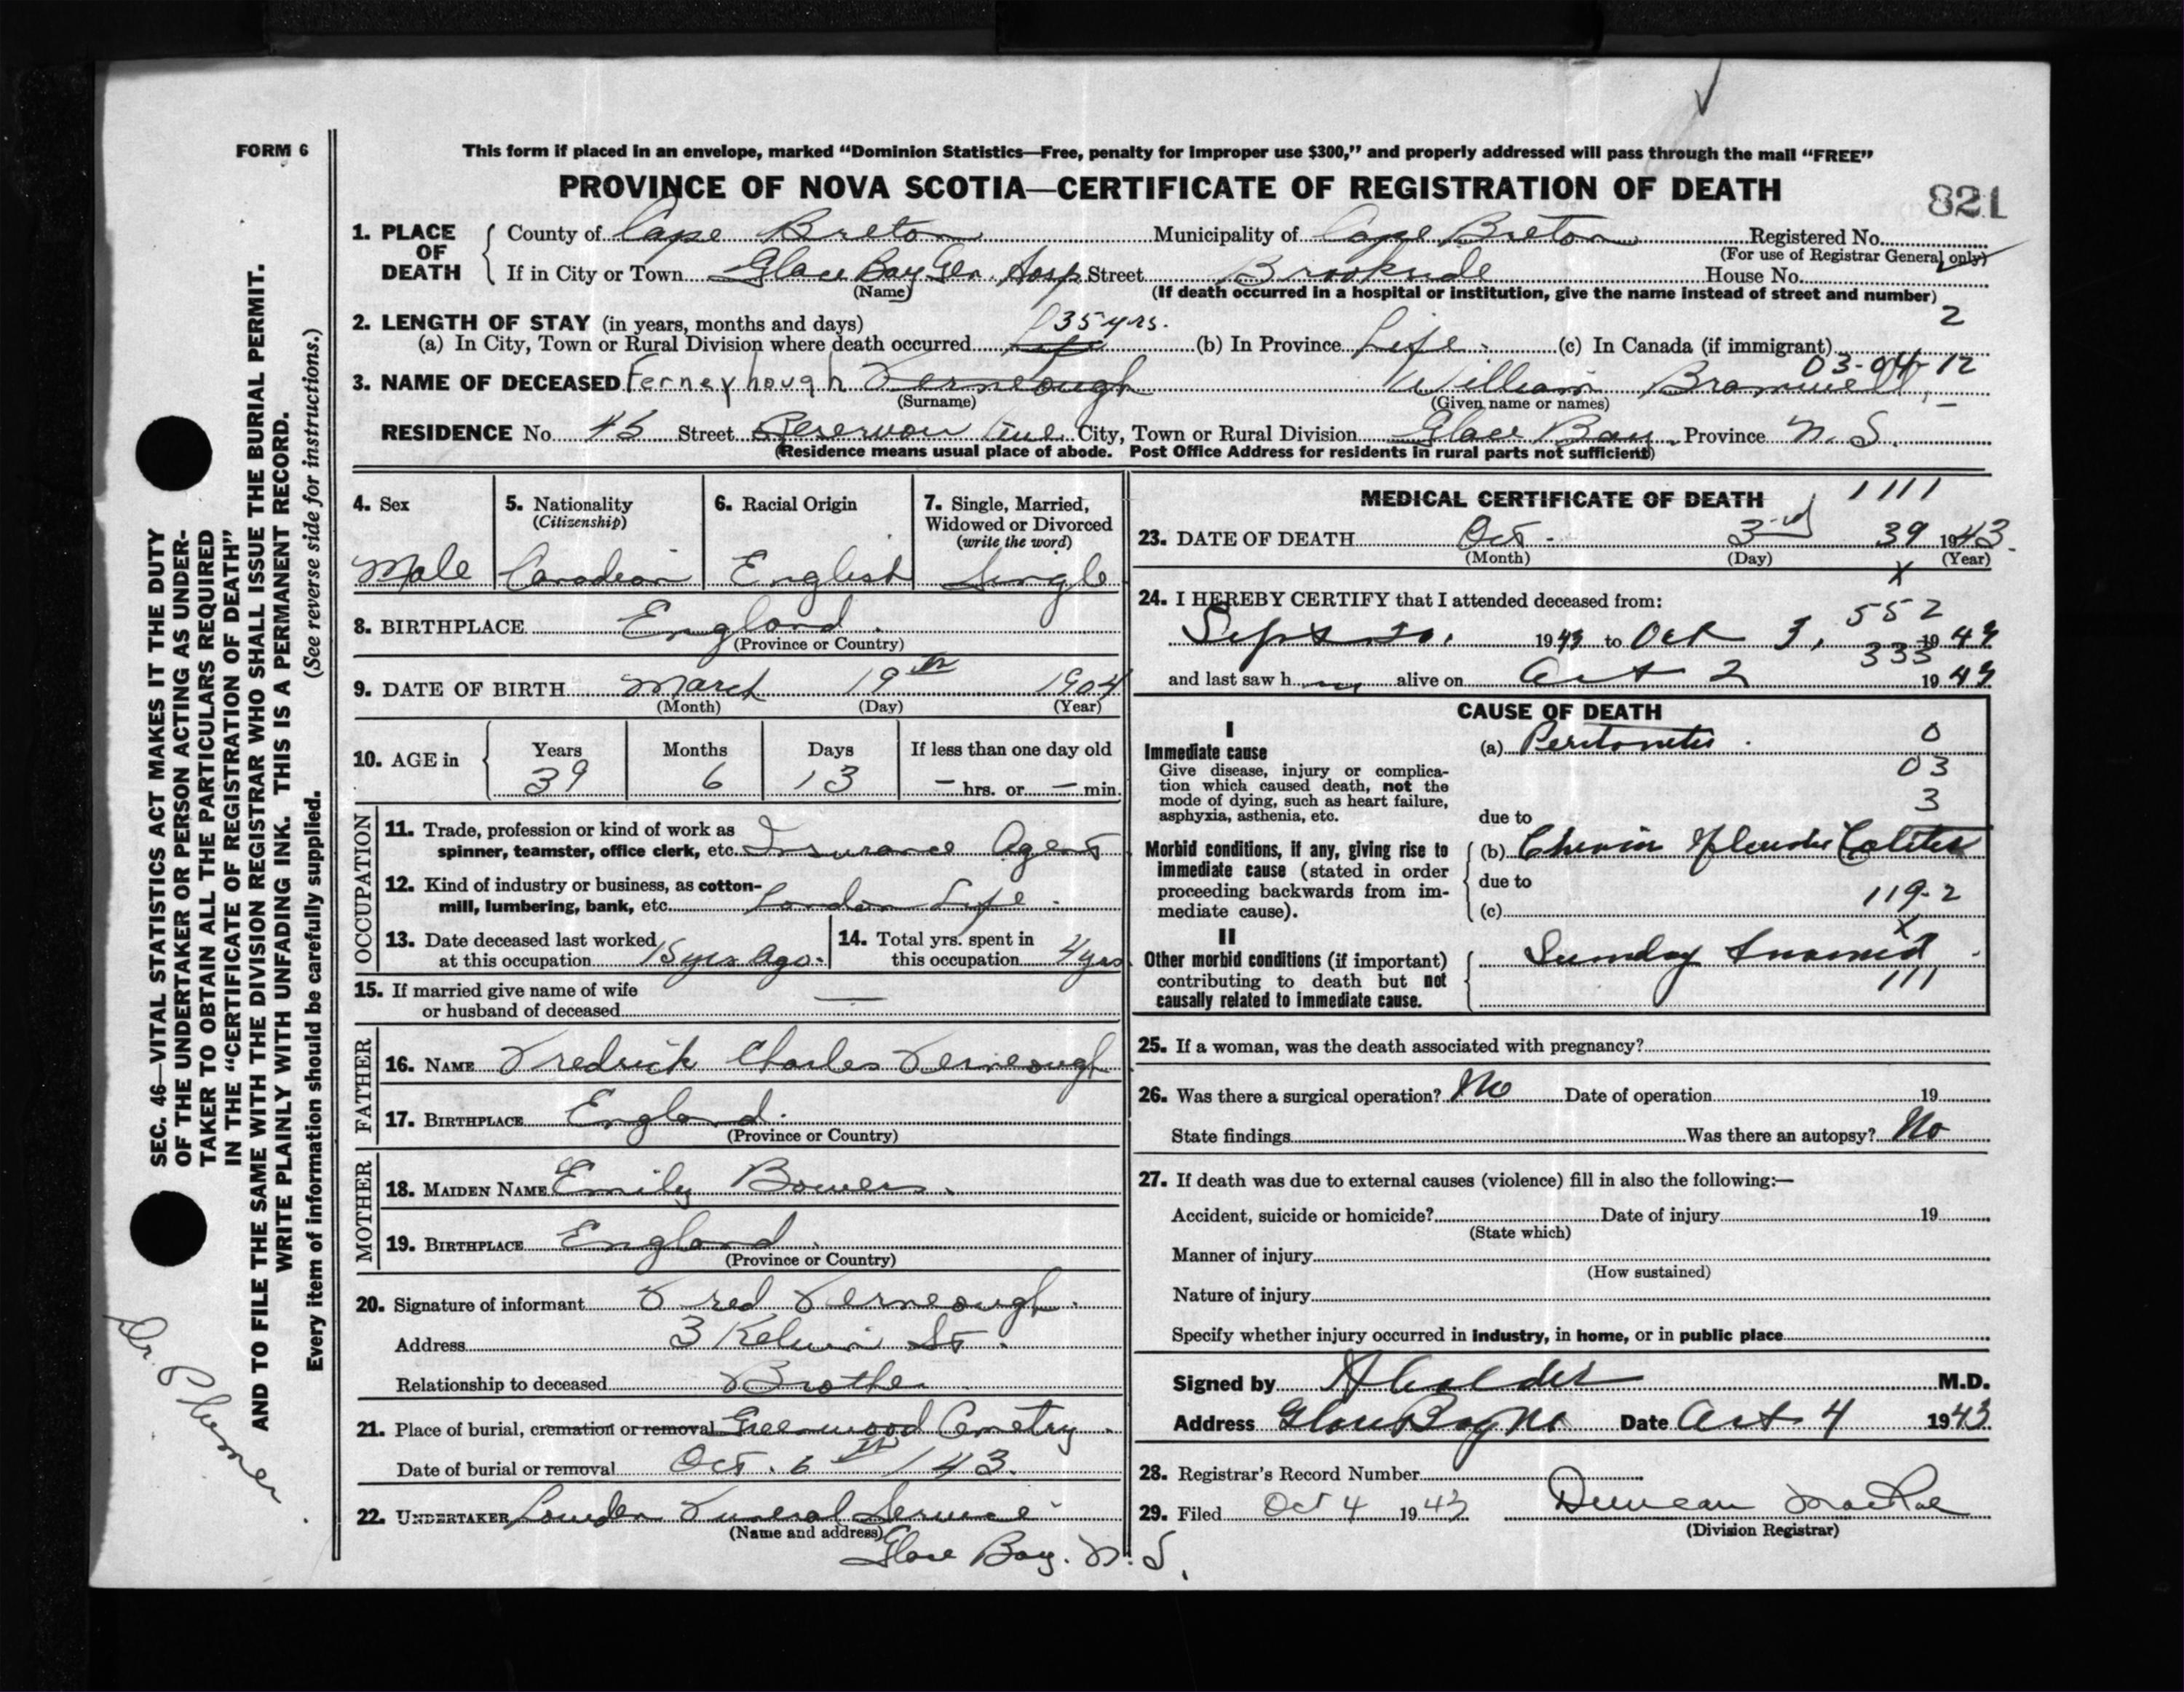 FORM 6
This form if placed in an envelope, marked “Dominion Statistics—Free, penalty for improper use $300,” and properly addressed will pass through the mail “FREE”
PROVINCE OF NOVA SCOTIA—CERTIFICATE OF REGISTRATION OF DEATH
821
1. PLACE OF DEATH
County of Cape Breton Municipality of Cape Breton Registered No.
(For use of Registrar General only)
If in City or Town Glace Bay Gen. Hosp Street Brookside House No.
(Name) (If death occurred in a hospital or institution, give the name instead of street and number)
2. LENGTH OF STAY (in years, months and days) 35 yrs. 2
(a) In City, Town or Rural Division where death occurred life (b) In Province Life. (c) In Canada (if immigrant)
03-04-12
3. NAME OF DECEASED Ferneyhough Ferneough William Bramwell
(Surname) (Given name or names)
RESIDENCE No. 45 Street Reservoir Ave. City, Town or Rural Division Glace Bay. Province N. S.
(Residence means usual place of abode. Post Office Address for residents in rural parts not sufficient)
4. Sex
Male
5. Nationality
(Citizenship)
Canadian
6. Racial Origin
English
7. Single, Married,
Widowed or Divorced
(write the word)
Single
8. BIRTHPLACE England.
(Province or Country)
9. DATE OF BIRTH March 19th 1904
(Month) (Day) (Year)
10. AGE in
Years Months Days If less than one day old
39 6 13 – hrs. or – min.
OCCUPATION
11. Trade, profession or kind of work as
spinner, teamster, office clerk, etc. Insurance Agent
12. Kind of industry or business, as cotton-
mill, lumbering, bank, etc. London Life.
13. Date deceased last worked
at this occupation 15 yrs ago.
14. Total yrs. spent in
this occupation 4 yrs
15. If married give name of wife
or husband of deceased —
FATHER
16. NAME Fredrick Charles Ferneough
17. BIRTHPLACE England.
(Province or Country)
MOTHER
18. MAIDEN NAME Emily Bowers.
19. BIRTHPLACE England.
(Province or Country)
20. Signature of informant Fred Ferneough.
Address 3 Kelvin St.
Relationship to deceased Brother
21. Place of burial, cremation or removal Greenwood Cemetry.
Date of burial or removal Oct. 6th / 43.
22. UNDERTAKER Funeral Service
(Name and address)
Glace Bay. N. S.
MEDICAL CERTIFICATE OF DEATH 1111
23. DATE OF DEATH Oct. 3rd 39 1943.
(Month) (Day) (Year)
X
24. I HEREBY CERTIFY that I attended deceased from:
552
Sept 20, 1943 to Oct 3, 1943
333
and last saw h im alive on Oct 2 1943
CAUSE OF DEATH
I
Immediate cause
Give disease, injury or complica-
tion which caused death, not the
mode of dying, such as heart failure,
asphyxia, asthenia, etc.
(a) Peritonitis.
0
03
3
due to
Morbid conditions, if any, giving rise to
immediate cause (stated in order
proceeding backwards from im-
mediate cause).
(b) Colitis
due to
119-2
(c)
X
II
Other morbid conditions (if important)
contributing to death but not
causally related to immediate cause.
111
25. If a woman, was the death associated with pregnancy?
26. Was there a surgical operation? No Date of operation 19
State findings Was there an autopsy? No
27. If death was due to external causes (violence) fill in also the following:—
Accident, suicide or homicide? Date of injury 19
(State which)
Manner of injury
(How sustained)
Nature of injury
Specify whether injury occurred in industry, in home, or in public place
Signed by M.D.
Address Glace Bay NS Date Oct 4 1943
28. Registrar's Record Number
29. Filed Oct 4 1943 Duncan MacRae
(Division Registrar)
SEC. 46—VITAL STATISTICS ACT MAKES IT THE DUTY
OF THE UNDERTAKER OR PERSON ACTING AS UNDER-
TAKER TO OBTAIN ALL THE PARTICULARS REQUIRED
IN THE “CERTIFICATE OF REGISTRATION OF DEATH”
AND TO FILE THE SAME WITH THE DIVISION REGISTRAR WHO SHALL ISSUE THE BURIAL PERMIT.
WRITE PLAINLY WITH UNFADING INK. THIS IS A PERMANENT RECORD.
Every item of information should be carefully supplied. (See reverse side for instructions.)
Dr.